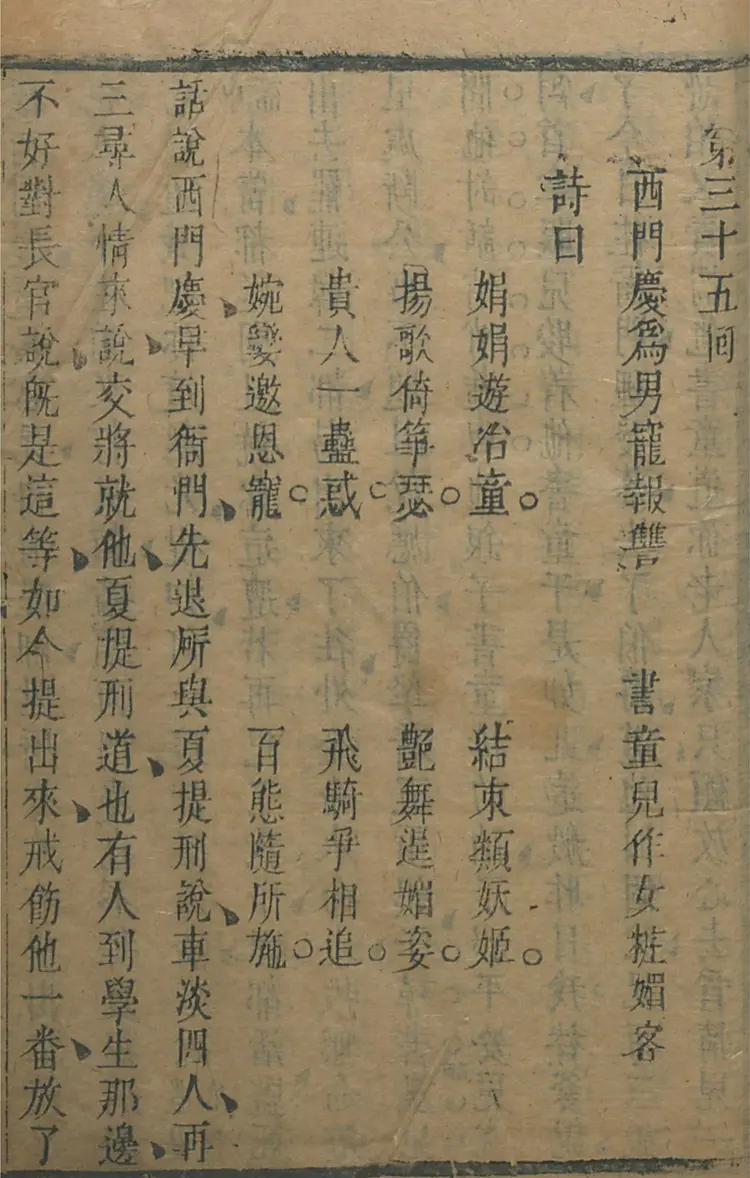 第三十五囘
西門慶爲男寵報讐 書童兒作女粧媚客
詩曰
娟娟遊冶童○ 結束類妖姬○
揚歌倚箏瑟○ 艷舞逞媚姿○
貴人一蠱惑○ 飛騎爭相追○
婉孌邀恩寵○ 百態隨所施○
話說西門慶早到衙門、先退所與夏提刑說、車淡四人、再
三尋人情來說、交將就他、夏提刑道、也有人到學生那邊、
不好對長官說、旣是這等、如今提出來、戒飭他一番、放了